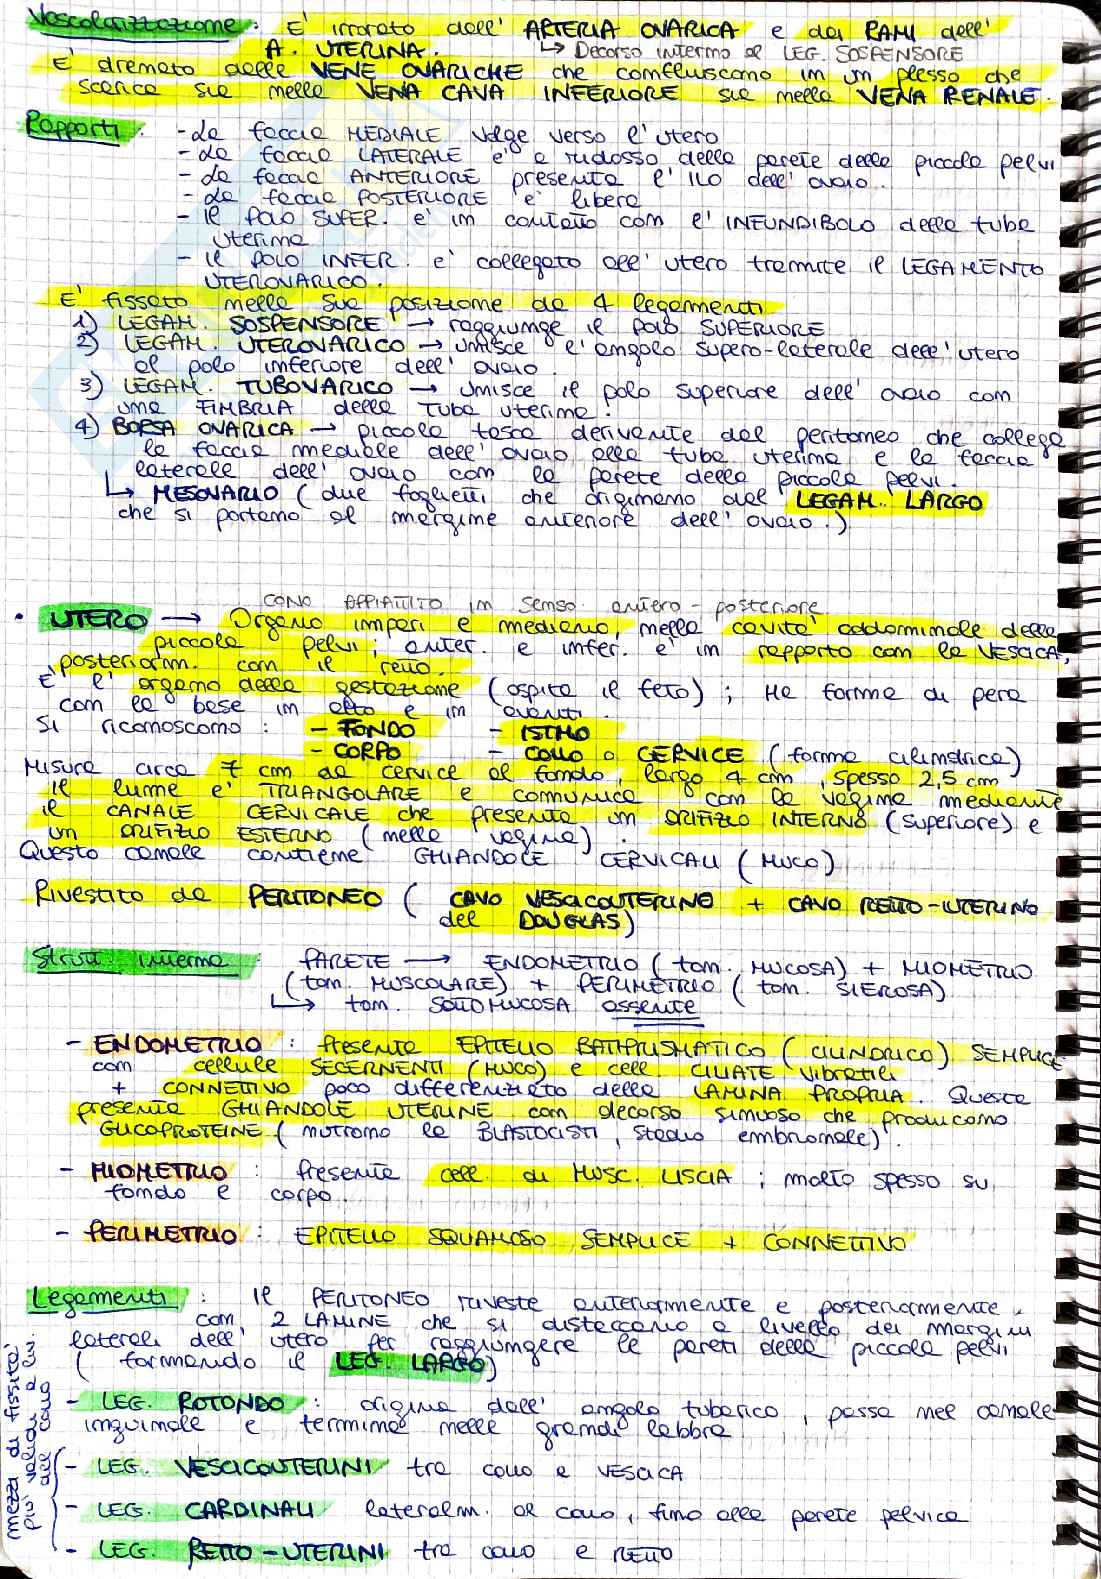 Vascolarizzazione : E' irrorato dall' ARTERIA OVARICA e dai RAMI dell'
A. UTERINA. ↳ Decorso interno al LEG. SOSPENSORE
E' drenato dalle VENE OVARICHE che confluiscono in un plesso che
scarica sia nella VENA CAVA INFERIORE sia nella VENA RENALE.
Rapporti : - La faccia MEDIALE volge verso l'utero
- La faccia LATERALE e' a ridosso della parete della piccola pelvi
- La faccia ANTERIORE presenta l' ILO dell' ovaio.
- La faccia POSTERIORE e' libera
- Il POLO SUPER. e' in contatto con l' INFUNDIBOLO della tuba
uterina
- Il POLO INFER. e' collegato all' utero tramite il LEGAMENTO
UTEROVARICO.
E' fissato nella sua posizione da 4 legamenti
1) LEGAM. SOSPENSORE → raggiunge il polo SUPERIORE
2) LEGAM. UTEROVARICO → unisce l'angolo supero-laterale dell'utero
al polo inferiore dell' ovaio.
3) LEGAM. TUBOVARICO → unisce il polo superiore dell' ovaio con
una FIMBRIA della tuba uterina.
4) BORSA OVARICA → piccola tasca derivante dal peritoneo che collega
la faccia mediale dell' ovaio alla tuba uterina e la faccia
laterale dell' ovaio con la parete della piccola pelvi.
↳ MESOVARIO (due foglietti che originano dal LEGAM. LARGO
che si portano al margine anteriore dell' ovaio.)
CONO APPIATTITO in senso antero-posteriore
• UTERO → Organo impari e mediano, nella cavita' addominale della
piccola pelvi; anter. e infer. e' in rapporto con la VESCICA,
posteriorm. con il retto.
E' l' organo della gestazione (ospita il feto); Ha forma di pera
con la base in alto e in avanti.
Si riconoscono : - FONDO - ISTMO
- CORPO - COLLO o CERVICE (forma cilindrica)
Misura circa 7 cm da cervice al fondo, largo 4 cm, spesso 2,5 cm
Il lume e' TRIANGOLARE e comunica con la vagina mediante
il CANALE CERVICALE che presenta un ORIFIZIO INTERNO (superiore) e
un ORIFIZIO ESTERNO (nella vagina).
Questo canale contiene GHIANDOLE CERVICALI (MUCO)
Rivestito da PERITONEO ( CAVO VESCICOUTERINO + CAVO RETTO-UTERINO
del DOUGLAS)
Strutt. interna : PARETE → ENDOMETRIO (ton. MUCOSA) + MIOMETRIO
(ton. MUSCOLARE) + PERIMETRIO (ton. SIEROSA)
↳ ton. SOTTOMUCOSA assente
- ENDOMETRIO : Presenta EPITELIO BATIPRISMATICO (CILINDRICO) SEMPLICE
con cellule SECERNENTI (MUCO) e cell. CILIATE vibratili
+ CONNETTIVO poco differenziato della LAMINA PROPRIA. Questa
presenta GHIANDOLE UTERINE con decorso sinuoso che producono
GLICOPROTEINE (nutrono la BLASTOCISTI, stadio embrionale).
- MIOMETRIO : Presenta cell. di MUSC. LISCIA ; molto spesso su
fondo e corpo.
- PERIMETRIO : EPITELIO SQUAMOSO SEMPLICE + CONNETTIVO
Legamenti : Il PERITONEO riveste anteriormente e posteriormente
con 2 LAMINE che si distaccano a livello dei margini
laterali dell' utero per raggiungere le pareti della piccola pelvi
(formando il LEG. LARGO)
- LEG. ROTONDO : origina dall' angolo tubarico, passa nel canale
inguinale e termina nelle grandi labbra
- LEG. VESCICOUTERINI tra collo e VESCICA
- LEG. CARDINALI lateralm. al collo, fino alla parete pelvica
- LEG. RETTO-UTERINI tra collo e RETTO
mezzi di fissita'
piu' validi a livl.
del collo